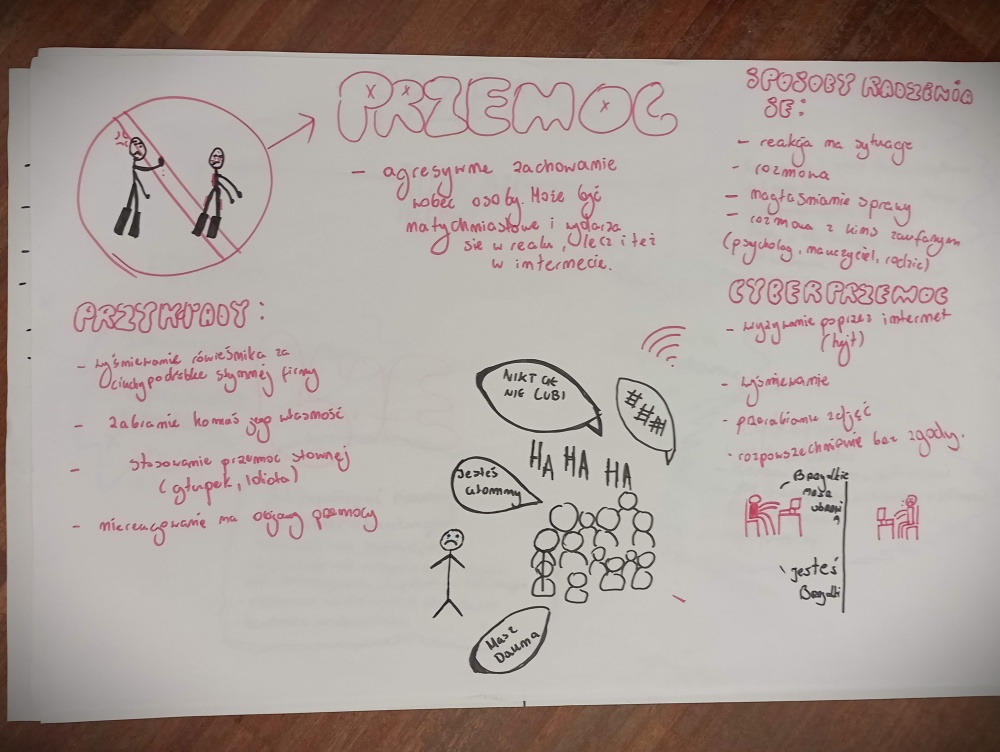 PRZEMOC
- agresywne zachowanie
wobec osoby. Może być
natychmiastowe i wydarza
się w realu, lecz i też
w internecie.
SPOSOBY RADZENIA
SIE:
- reakcja na sytuacje
- rozmowa
- nagłaśnianie sprawy
- rozmowa z kimś zaufanym
(psycholog, nauczyciel, rodzic)
PRZYKŁADY:
- wyśmiewanie rówieśnika za
ciuchy podróbke słynnej firmy
- zabranie komuś jego własność
- stosowanie przemoc słownej
(głupek, idiota)
- niereagowanie na objawy przemocy
CYBERPRZEMOC
- wyzywanie poprzez internet
(hejt)
- wyśmiewanie
- przerabianie zdjęć
- rozpowszechnianie bez zgody.
NIKT CIE
NIE LUBI
###
HA HA HA
Jesteś
ułomny
Masz
Dauna
- Brzydkie
masz
ubrani
a
\ Jesteś
Brzydki